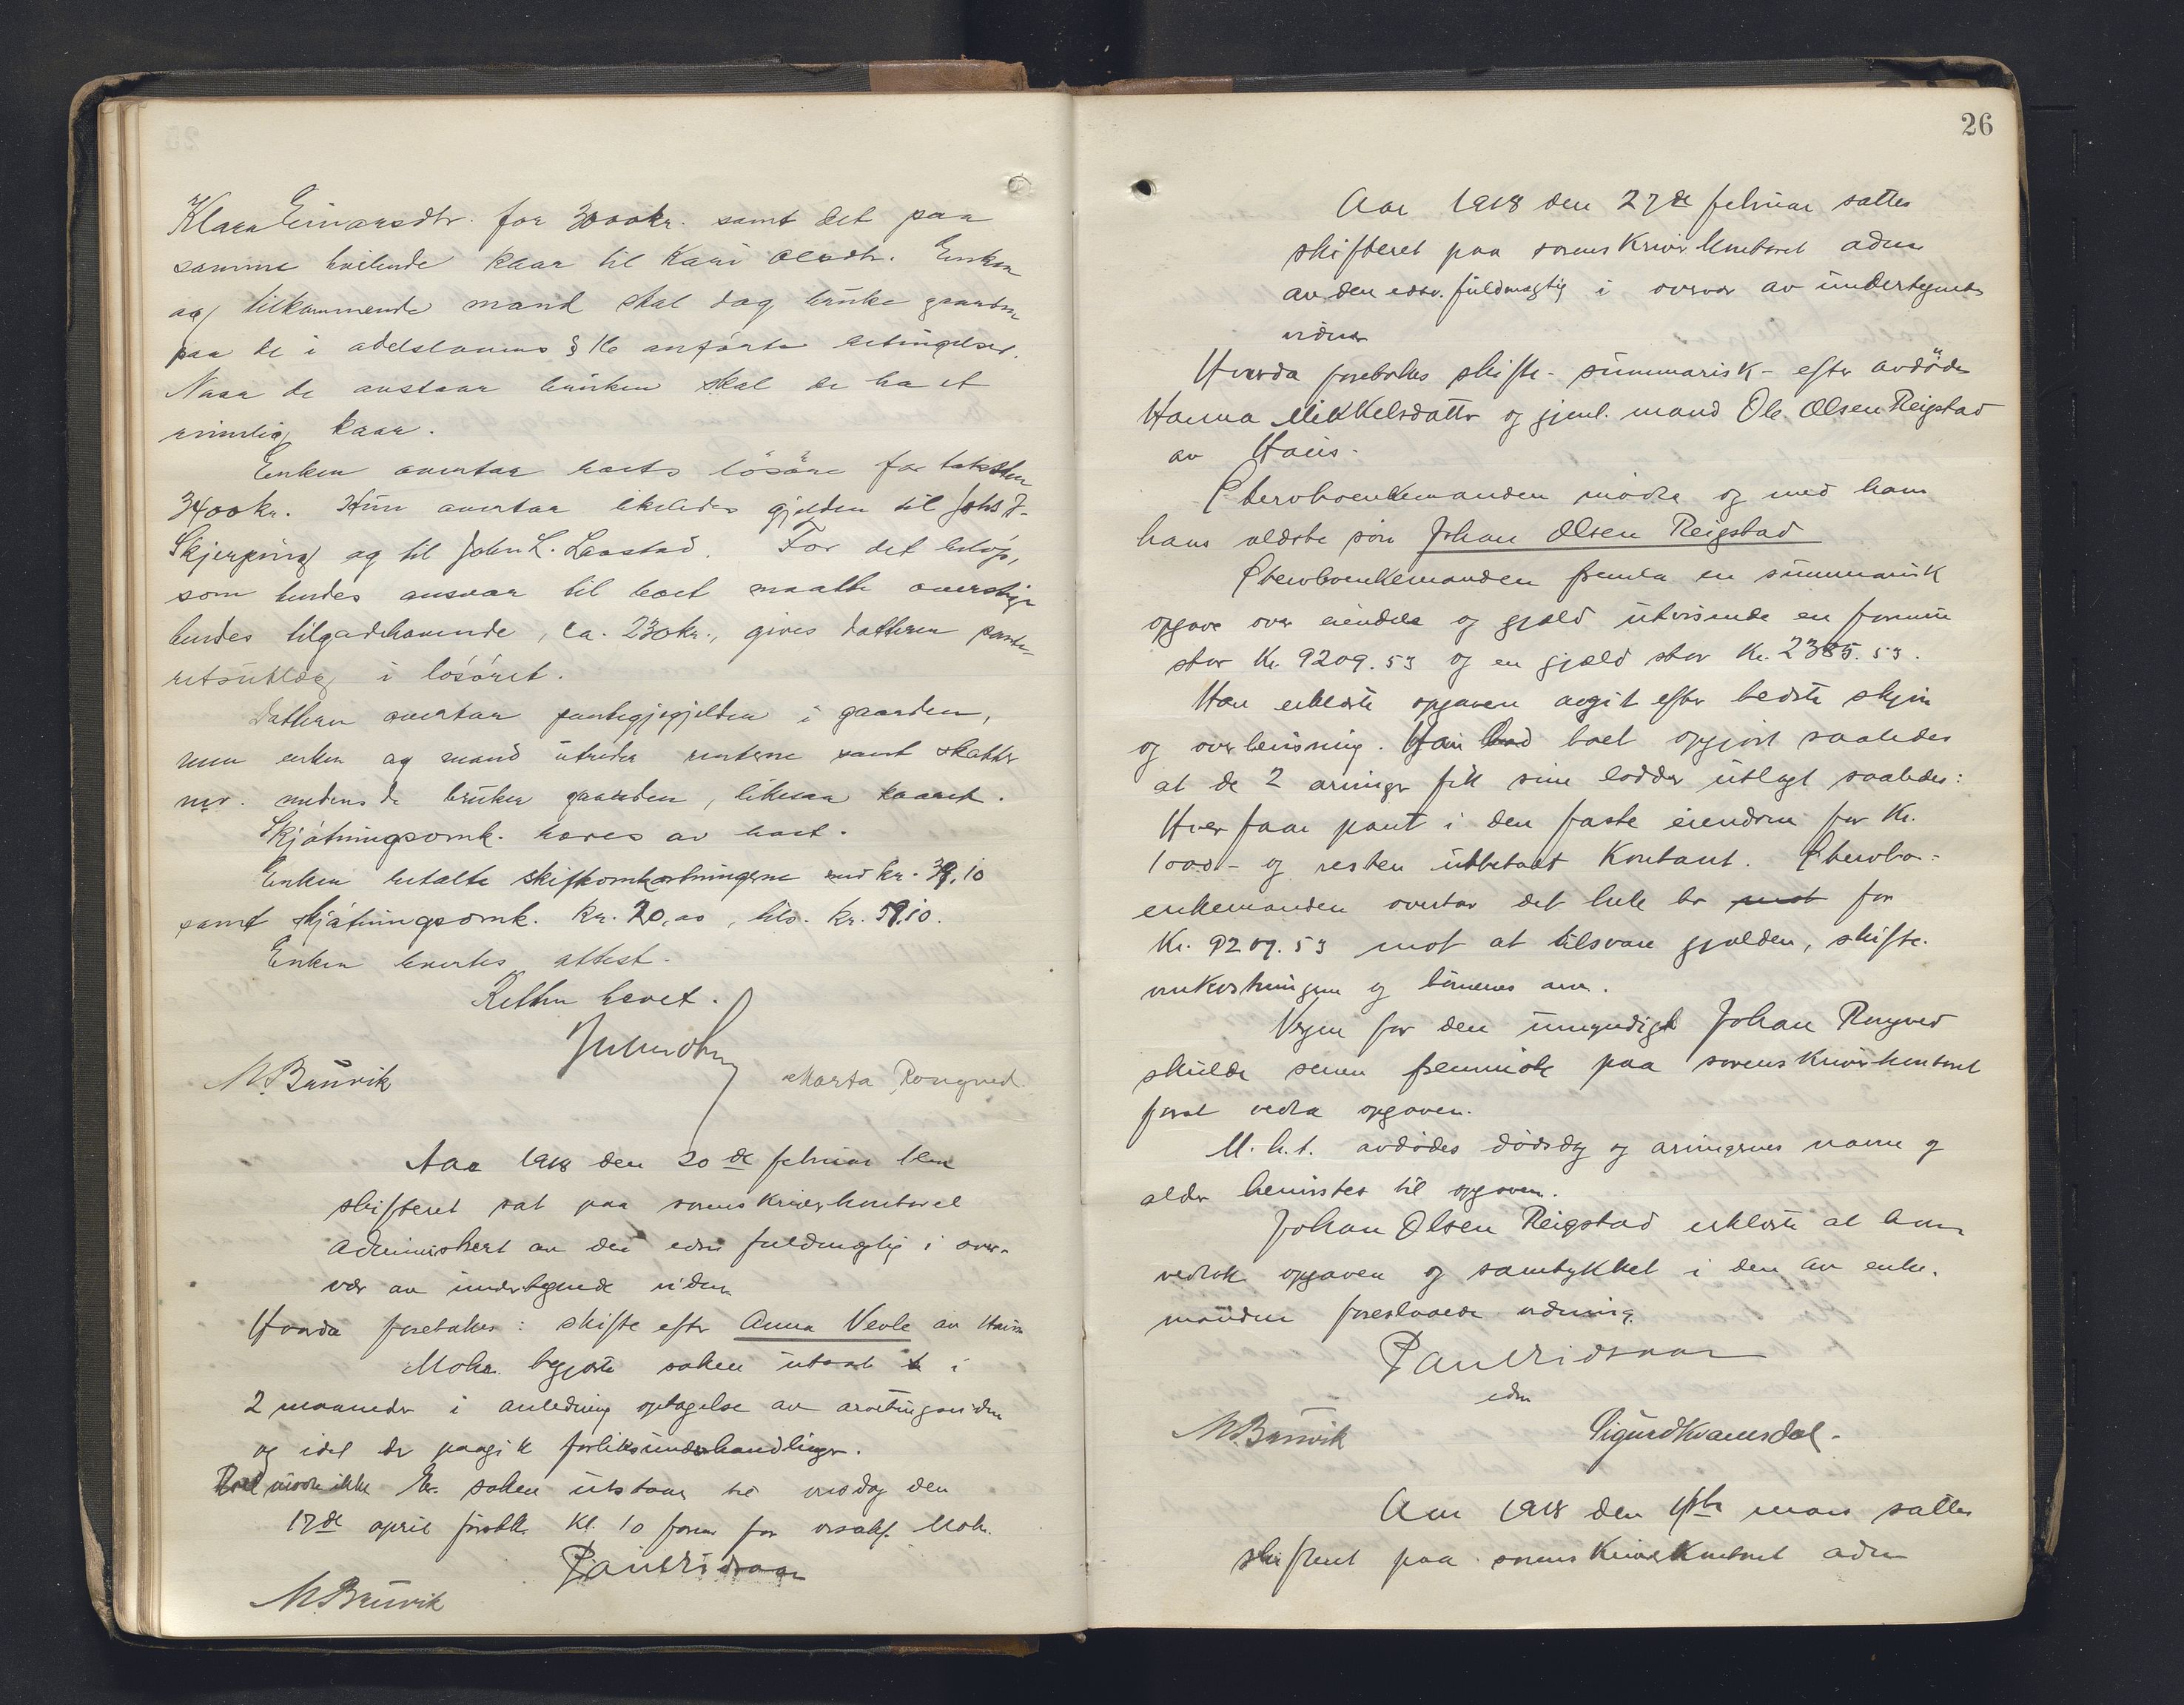 Klara Einarsdtr. for 3000kr. samt det paa
samme hvilende kaar til Kari Olsdtr. Enken
og tilkommende mand skal dog bruke gaarden
paa de i odelslovens § 16 anførte betingelser.
Naar de avstaar bruken skal de ha et
rimelig kaar.
Enken overtar boets løsøre for taksten
3400kr. Hun overtar likeledes gjelden til Johs J.
Skjerping og til John L. Laastad. For det beløp,
som hendes ansvar til boet maatte overstige
hendes tilgodehavende, ca. 230kr., gives datteren pante-
retsutlæg i løsøret.
Datteren overtar pantegjegjelden i gaarden,
men enken og mand utreder renterne samt skatter
mv. medens de bruker gaarden, likesaa kaaret.
Skjøtningsomk. bæres av boet.
Enken betalte skifteomkostningerne med kr. 39,10
samt skjøtningsomk. kr. 20,00, tils. kr. 59,10.
Enken levertes attest.
Retten hævet.
M. Bruvik Marta Rongved.
Aar 1918 den 20de februar blev
skifteret sat paa sorenskriverkontoret
administrert av den edsv fuldmægtig i over-
vær av undertegnede vidne
Hvorda foretokes: skifte efter Anna Veole av Haus
Mohr begjærte saken utsat i
2 maaneder i anledning optagelse av arvetingsvidne
og idet der paagik forliksunderhandlinger.
møtte ikke Er. saken utstaar til onsdag den
17de april førstk. Kl. 10 form for orsakf. Mohr.
Paul Idsoar
M. Bruvik
26
Aar 1918 den 27de februar sattes
skifteret paa sorenskriverkontoret adm
av den edsv. fuldmægtig i overvær av undertegnets
vidner
Hvorda foretokes skifte - summarisk - efter avdøde
Hanna Mikkelsdatter og gjenl. mand Ole Olsen Reigstad
av Haus.
Stervboenkemanden møtte og med ham
hans ældste søn Johan Olsen Reigstad
Stervboenkemanden fremla en summarisk
opgave over eiendele og gjæld utvisende en formue
stor Kr. 9209.53 og en gjæld stor Kr. 2385.53.
Han erklærte opgaven avgit efter bedste skjøn
og overbevisning. Han boet opgjort saaledes
at de 2 arvinger fik sine lodder utlagt saaledes:
Hver faar pant i den faste eiendom for Kr.
1000.- og resten utbetalt Kontant. Stervbo-
enkemanden overtar det hele bo for
Kr. 9209.53 mot at tilsvare gjælden, skifte-
omkostningerne og børnenes arv.
Vergen for den umyndige Johan Rongved
skulde senere fremmøte paa sorenskriverkontoret
forat vedta opgaven.
M.h.t. avdødes dødsdag og arvingernes navne og
alder henvistes til opgaven.
Johan Olsen Reigstad erklærte at han
vedtok opgaven og samtykket i den av enke-
manden foreslaaede ordning.
Paul Idsoar
edsv
M. Bruvik Sigurd Kvamsdal.
Aar 1918 den 1ste mars sattes
skifteret paa sorenskriverkontoret adm